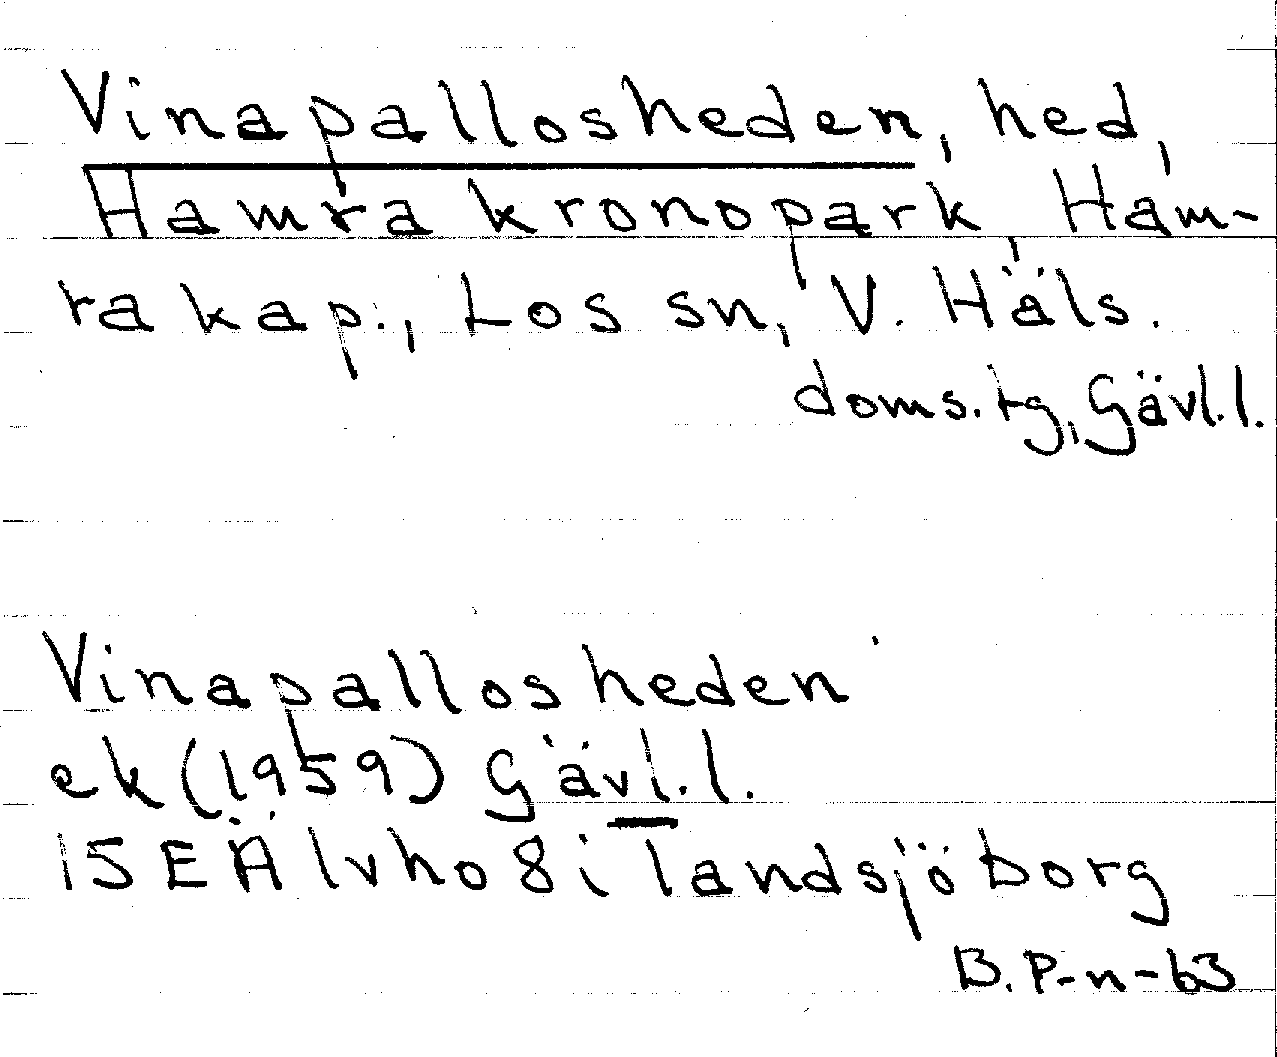 Vinapallosheden, hed,
Hamra kronopark, Ham-
ra kap., Los sn, V. Häls.
doms.tg, Gävl.l.
Vinapallosheden
ek (1959) Gävl.l.
15 E Älvho 8 i landsjöborg
B. P-n-63